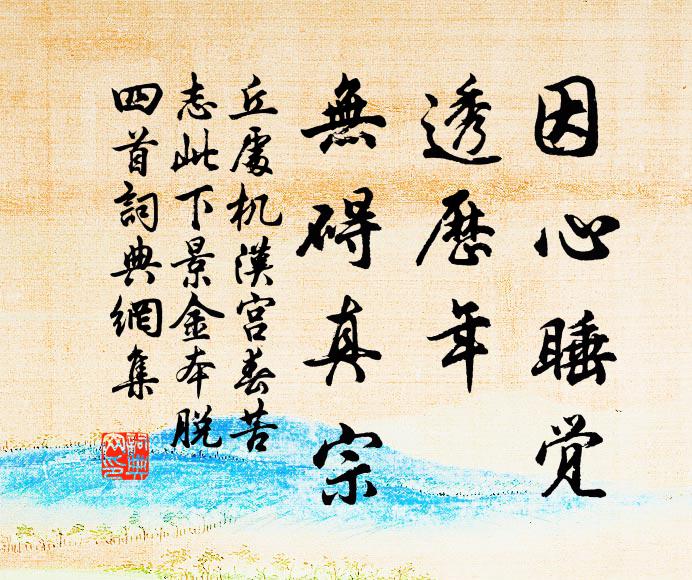 因心睡觉
透歷年
無碍真宗
丘處机漢宮春苦
志此下景金本脱
四首詞典網集